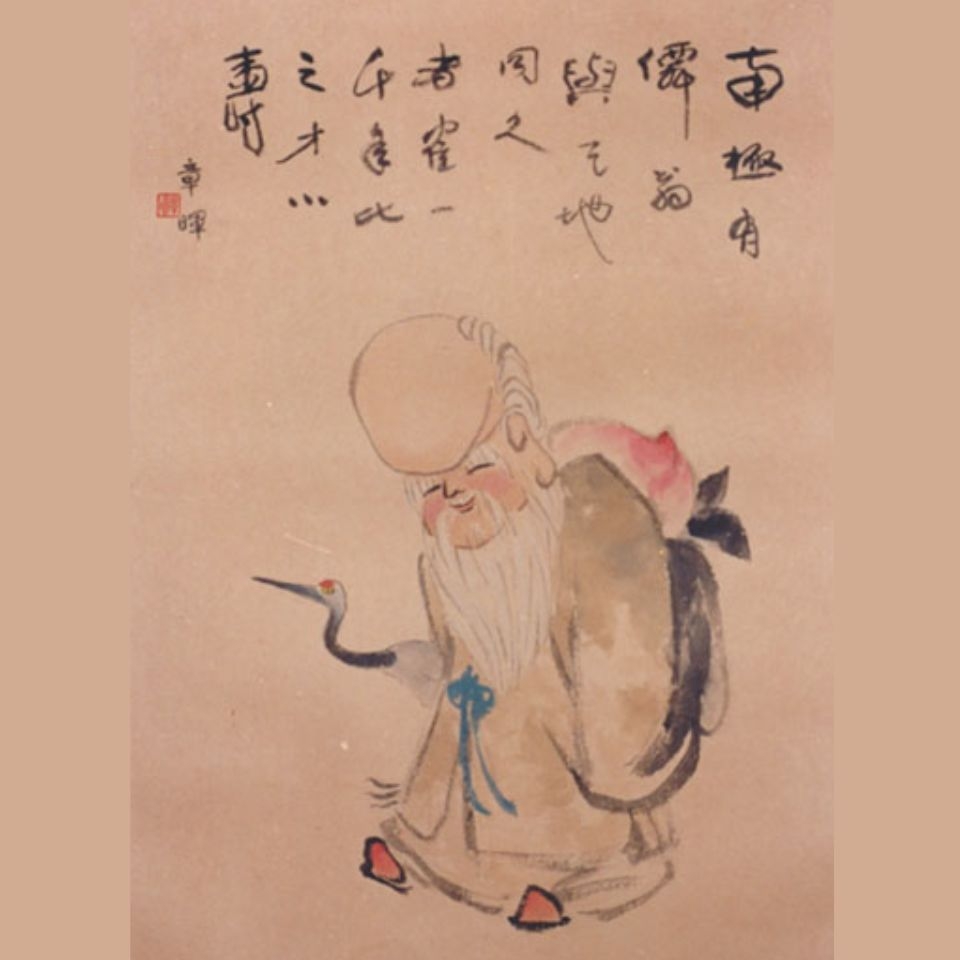 南極有
僊翁
與天地
同久
者隺一
千年比
之才小
壽
章暉